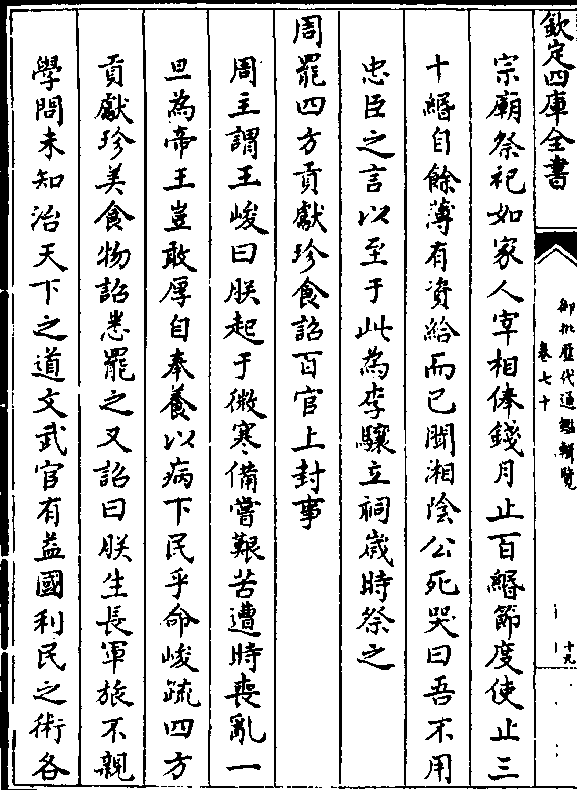 欽定四庫全書
御批歷代通鑑輯覽
卷七十
十九
宗廟祭祀如家人宰相俸錢月止百緡節度使止三
十緡自餘薄有資給而已聞湘陰公死哭曰吾不用
忠臣之言以至于此為李驤立祠歲時祭之
周罷四方貢獻珍食詔百官上封事
周主謂王峻曰朕起于微寒備嘗艱苦遭時喪亂一
旦為帝王豈敢厚自奉養以病下民乎命峻疏四方
貢獻珍美食物詔悉罷之又詔曰朕生長軍旅不親
學問未知治天下之道文武官有益國利民之術各